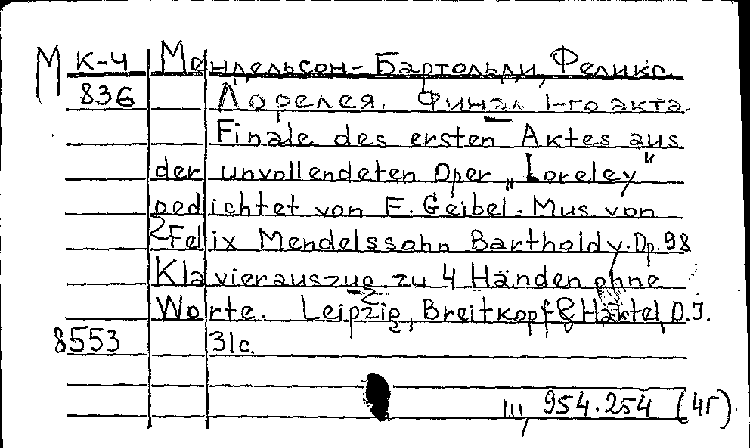 М К-4 Мендельсон-Бартольди, Феликс.
836 Лорелея. Финал 1-го акта.
Finale des ersten Aktes aus
der unvollendeten Oper „Loreley"
gedichtet von E. Geibel. Mus von
Felix Mendelssohn Bartholdy. Op. 98
Klavierauszug zu 4 Händen ohne
Worte. Leipzig, Breitkopf & Härtel, O.J.
8553 31c.
III, 954.254 (4г)